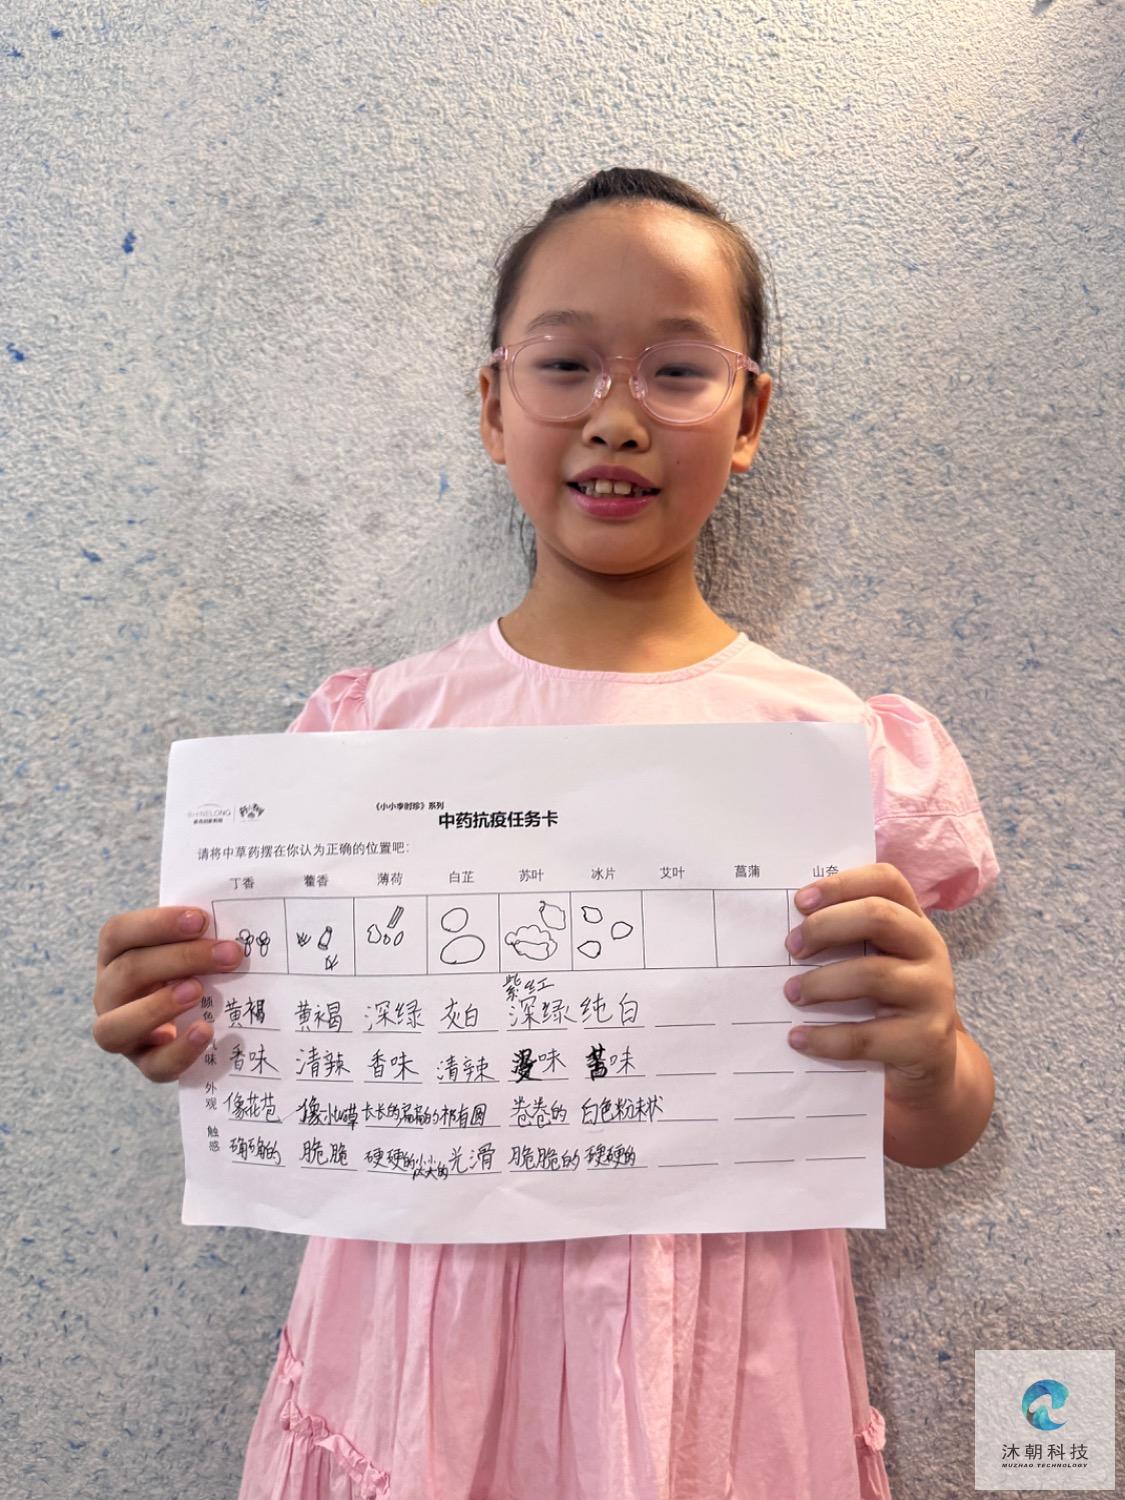 SHINELONG
《小小李时珍》系列
中药抗疫任务卡
请将中草药摆在你认为正确的位置吧:
丁香 藿香 薄荷 白芷 苏叶 冰片 艾叶 菖蒲 山奈
紫红
颜色 黄褐 黄褐 深绿 灰白 深绿 纯白
味 香味 清辣 香味 清辣 味 苦味
外观 像花苞 像小山草 长长的扁扁的 椭圆 卷卷的 白色粉末状
触感 确确的 脆脆 硬硬的 光滑 脆脆的 硬硬的
尖尖的
沐朝科技
MUZHAO TECHNOLOGY